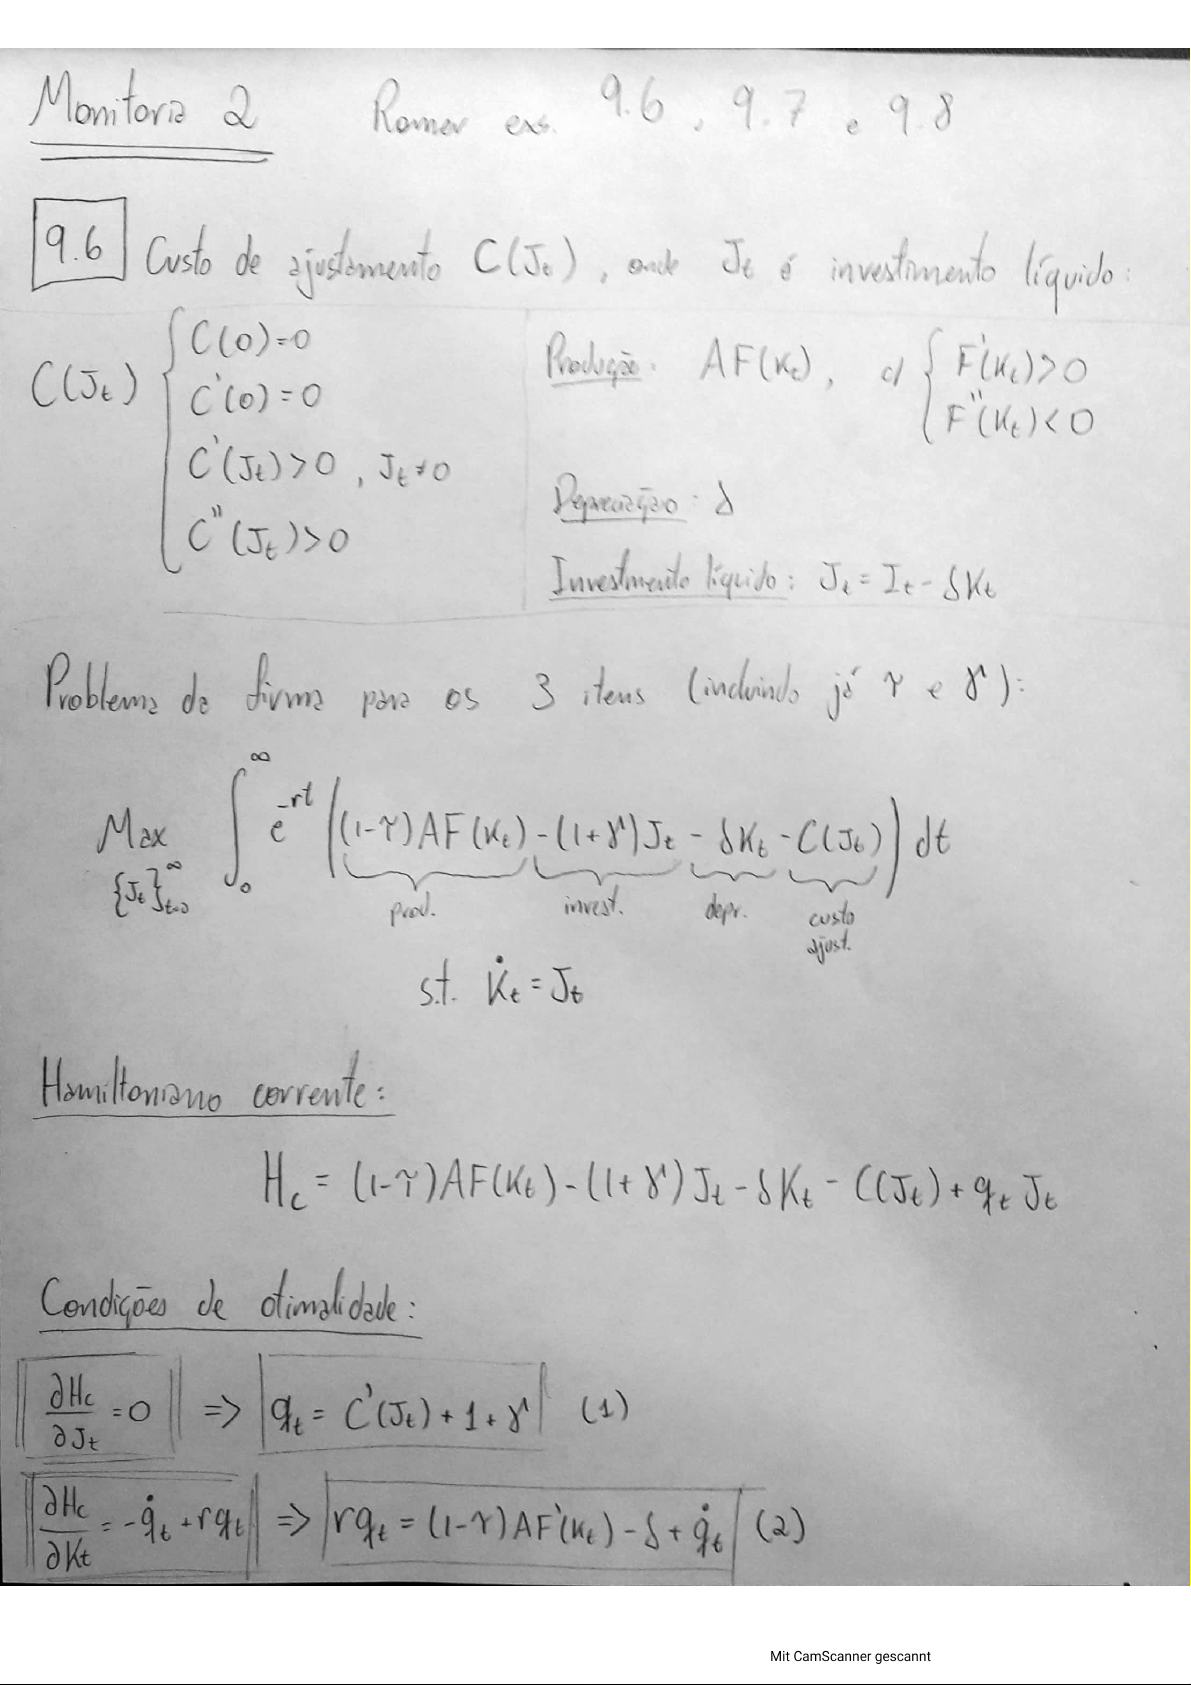 Monitoria 2 Romer exs. 9.6, 9.7 e 9.8
9.6 Custo de ajustamento C(J_t), onde J_t é investimento líquido:
C(J_t) { C(0)=0
C'(0)=0
C'(J_t)>0, J_t≠0
C''(J_t)>0
Produção: AF(K_t), c/ { F'(K_t)>0
F''(K_t)<0
Depreciação: δ
Investimento líquido: J_t = I_t - δK_t
Problema da firma para os 3 itens (incluindo já τ e γ):
Max {J_t}_{t=0}^∞ ∫_0^∞ e^{-rt} ((1-τ)AF(K_t) - (1+γ)J_t - δK_t - C(J_t)) dt
prod. invest. depr. custo ajust.
s.t. K̇_t = J_t
Hamiltoniano corrente:
H_c = (1-τ)AF(K_t) - (1+γ)J_t - δK_t - C(J_t) + q_t J_t
Condições de otimalidade:
∂H_c/∂J_t = 0 => q_t = C'(J_t) + 1 + γ (1)
∂H_c/∂K_t = -q̇_t + rq_t => rq_t = (1-τ)AF'(K_t) - δ + q̇_t (2)
Mit CamScanner gescannt